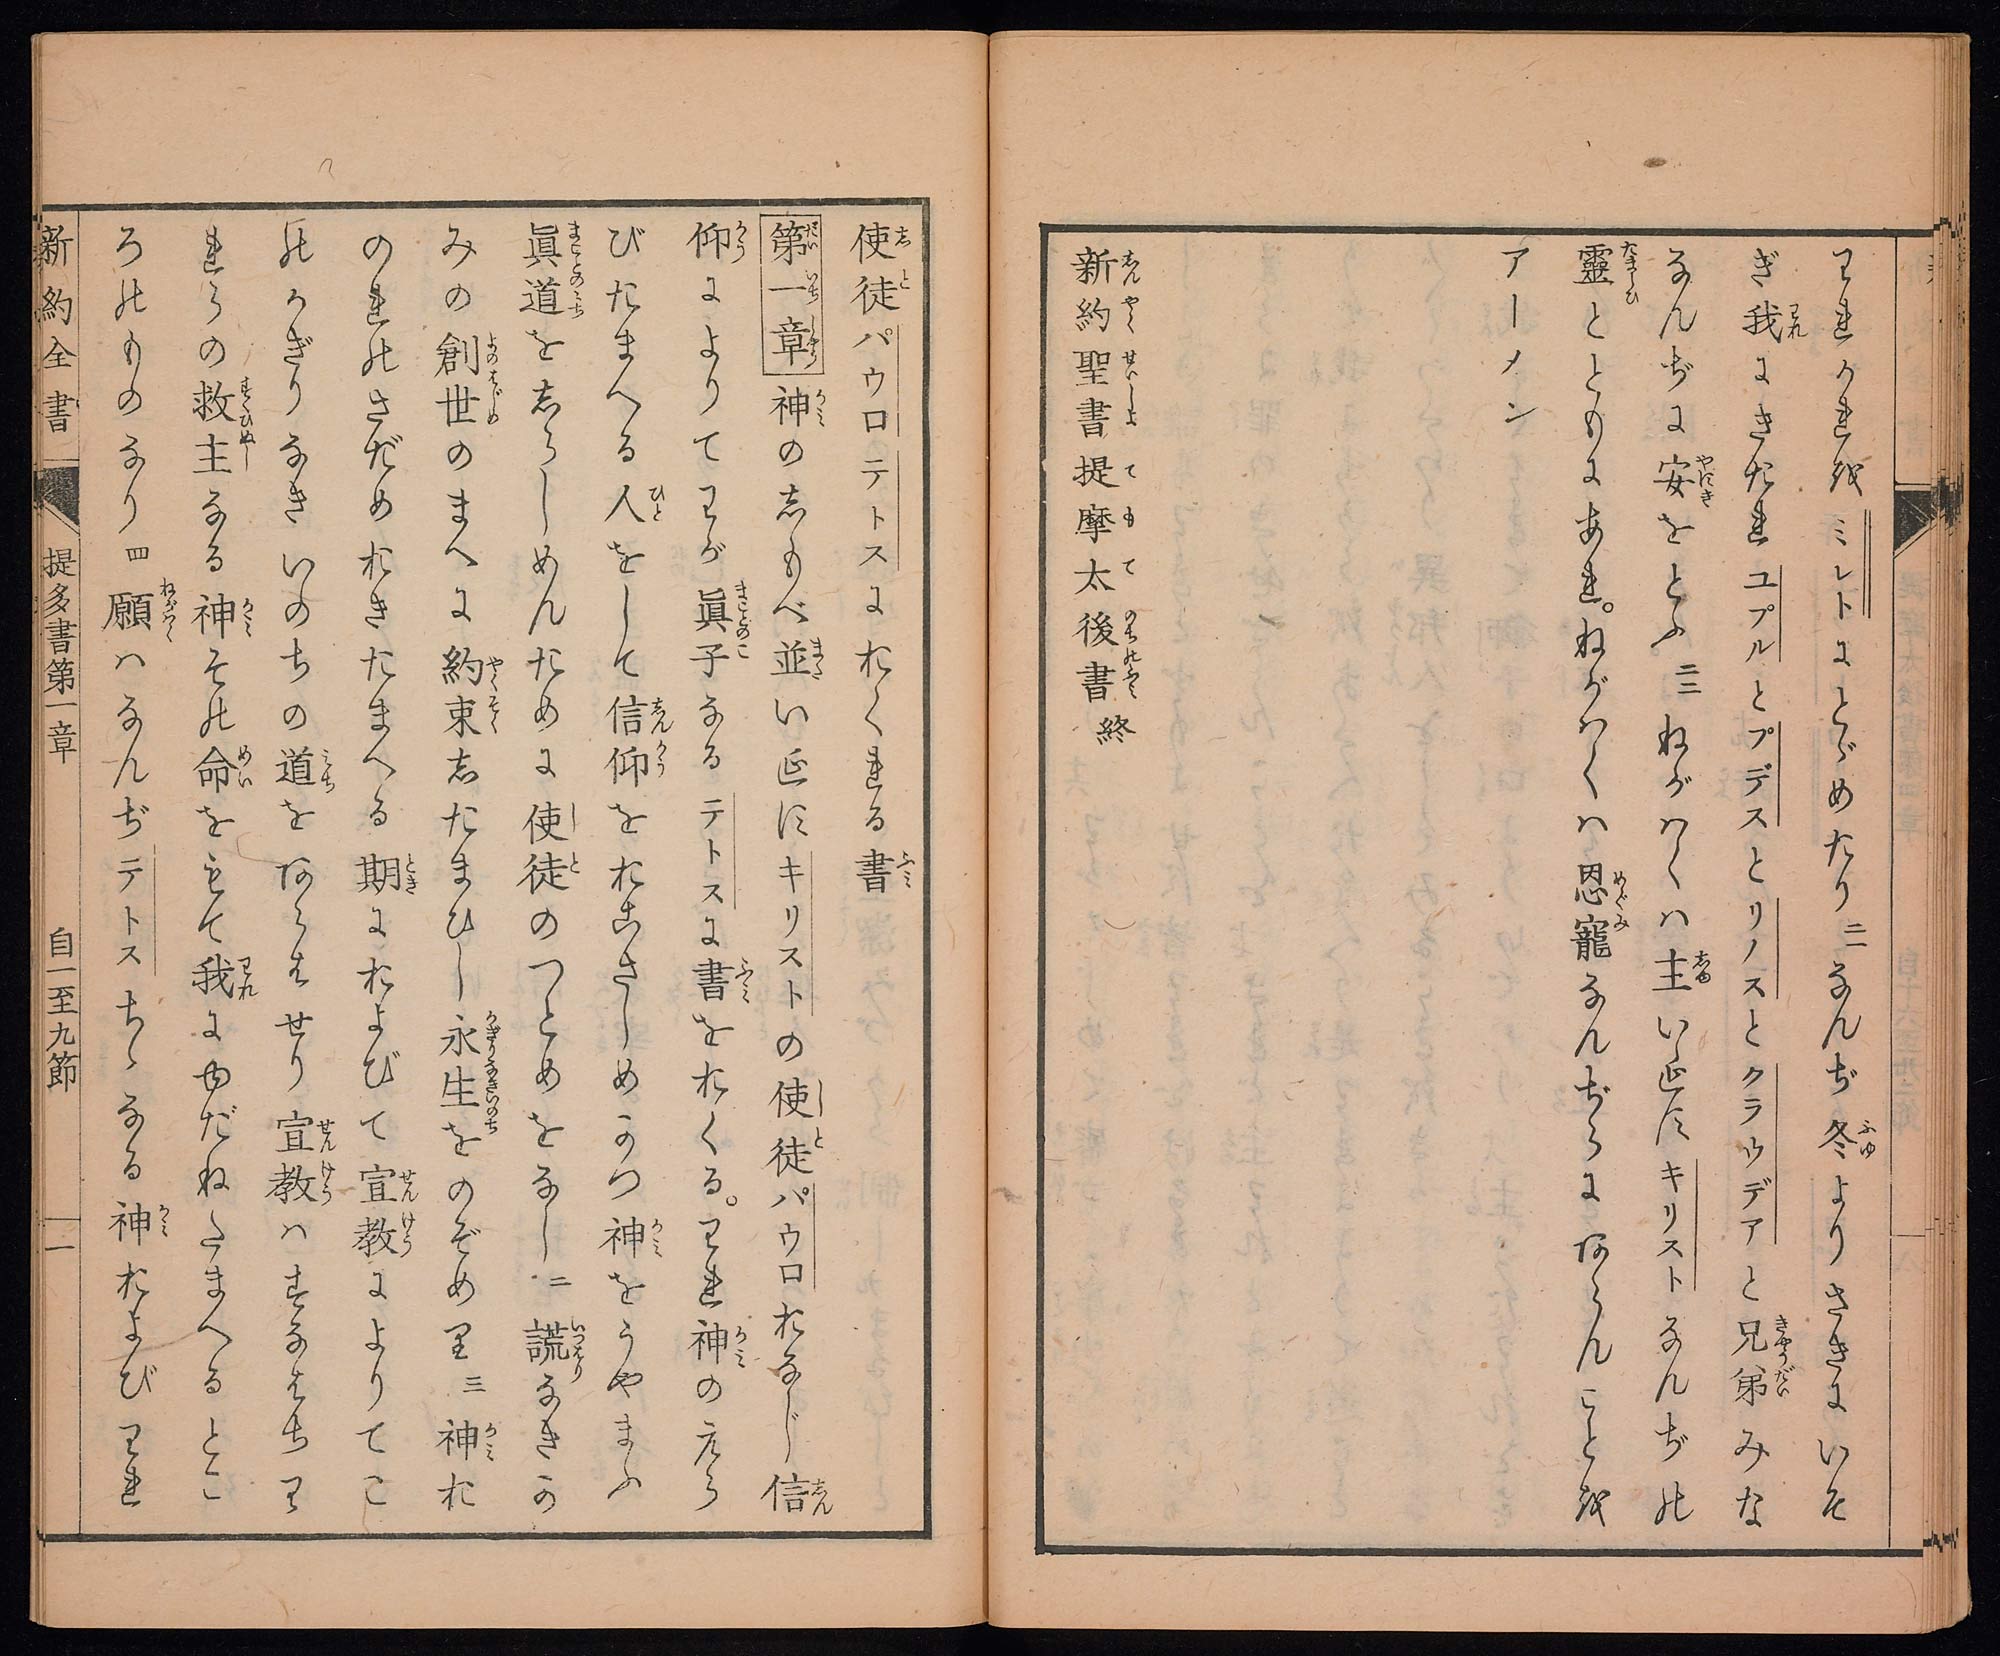 われかれをミレトにとゞめたり二一なんぢ冬よりさきにいそ
ぎ我にきたれユブルとプデスとリノスとクラウデアと兄弟みな
なんぢに安をとふ二二ねがはくは主いエスキリストなんぢの
靈とともにあれ。ねがはくは恩寵なんぢらにあらんことを
アーメン
新約聖書提摩太後書終
使徒パウロテトスにおくれる書
第一章神のしもべ並いエスキリストの使徒パウロおなじ信
仰によりてわが眞子なるテトスに書をおくる。われ神のえら
びたまへる人をして信仰をおこさしめかつ神をうやまふ
眞道をしらしめんために使徒のつとめをなし二謊なきか
みの創世のまへに約束したまひし永生をのぞめり三神お
のれのさだめおきたまへる期におよびて宣教によりてこ
のかぎりなきいのちの道をあらはせり宣教はすなはちわ
れらの救主なる神その命をもて我にゆだねたまへるとこ
ろのものなり四願はなんぢテトスちゝなる神およびわれ
新約全書
提多書第一章
自一至九節
一